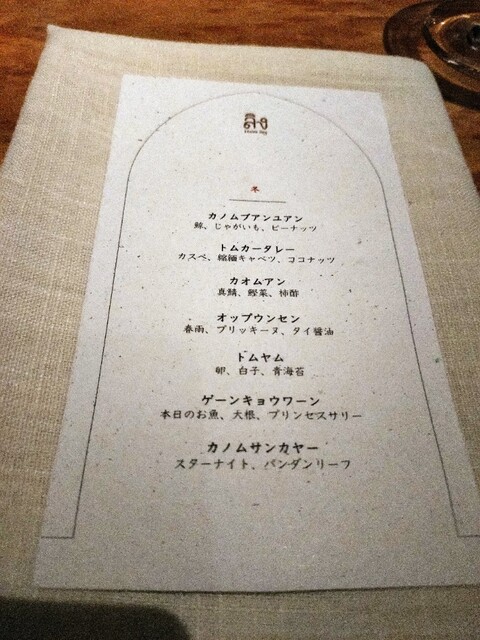 冬
カノムブアンユアン
鯨、じゃがいも、ピーナッツ
トムカーターレー
カスベ、縮緬キャベツ、ココナッツ
カオムアン
真鯖、鰹菜、柿酢
オップウンセン
春雨、プリッキーヌ、タイ醤油
トムヤム
卵、白子、青海苔
ゲーンキョウワーン
本日のお魚、大根、プリンセスサリー
カノムサンカヤー
スターナイト、パンダンリーフ